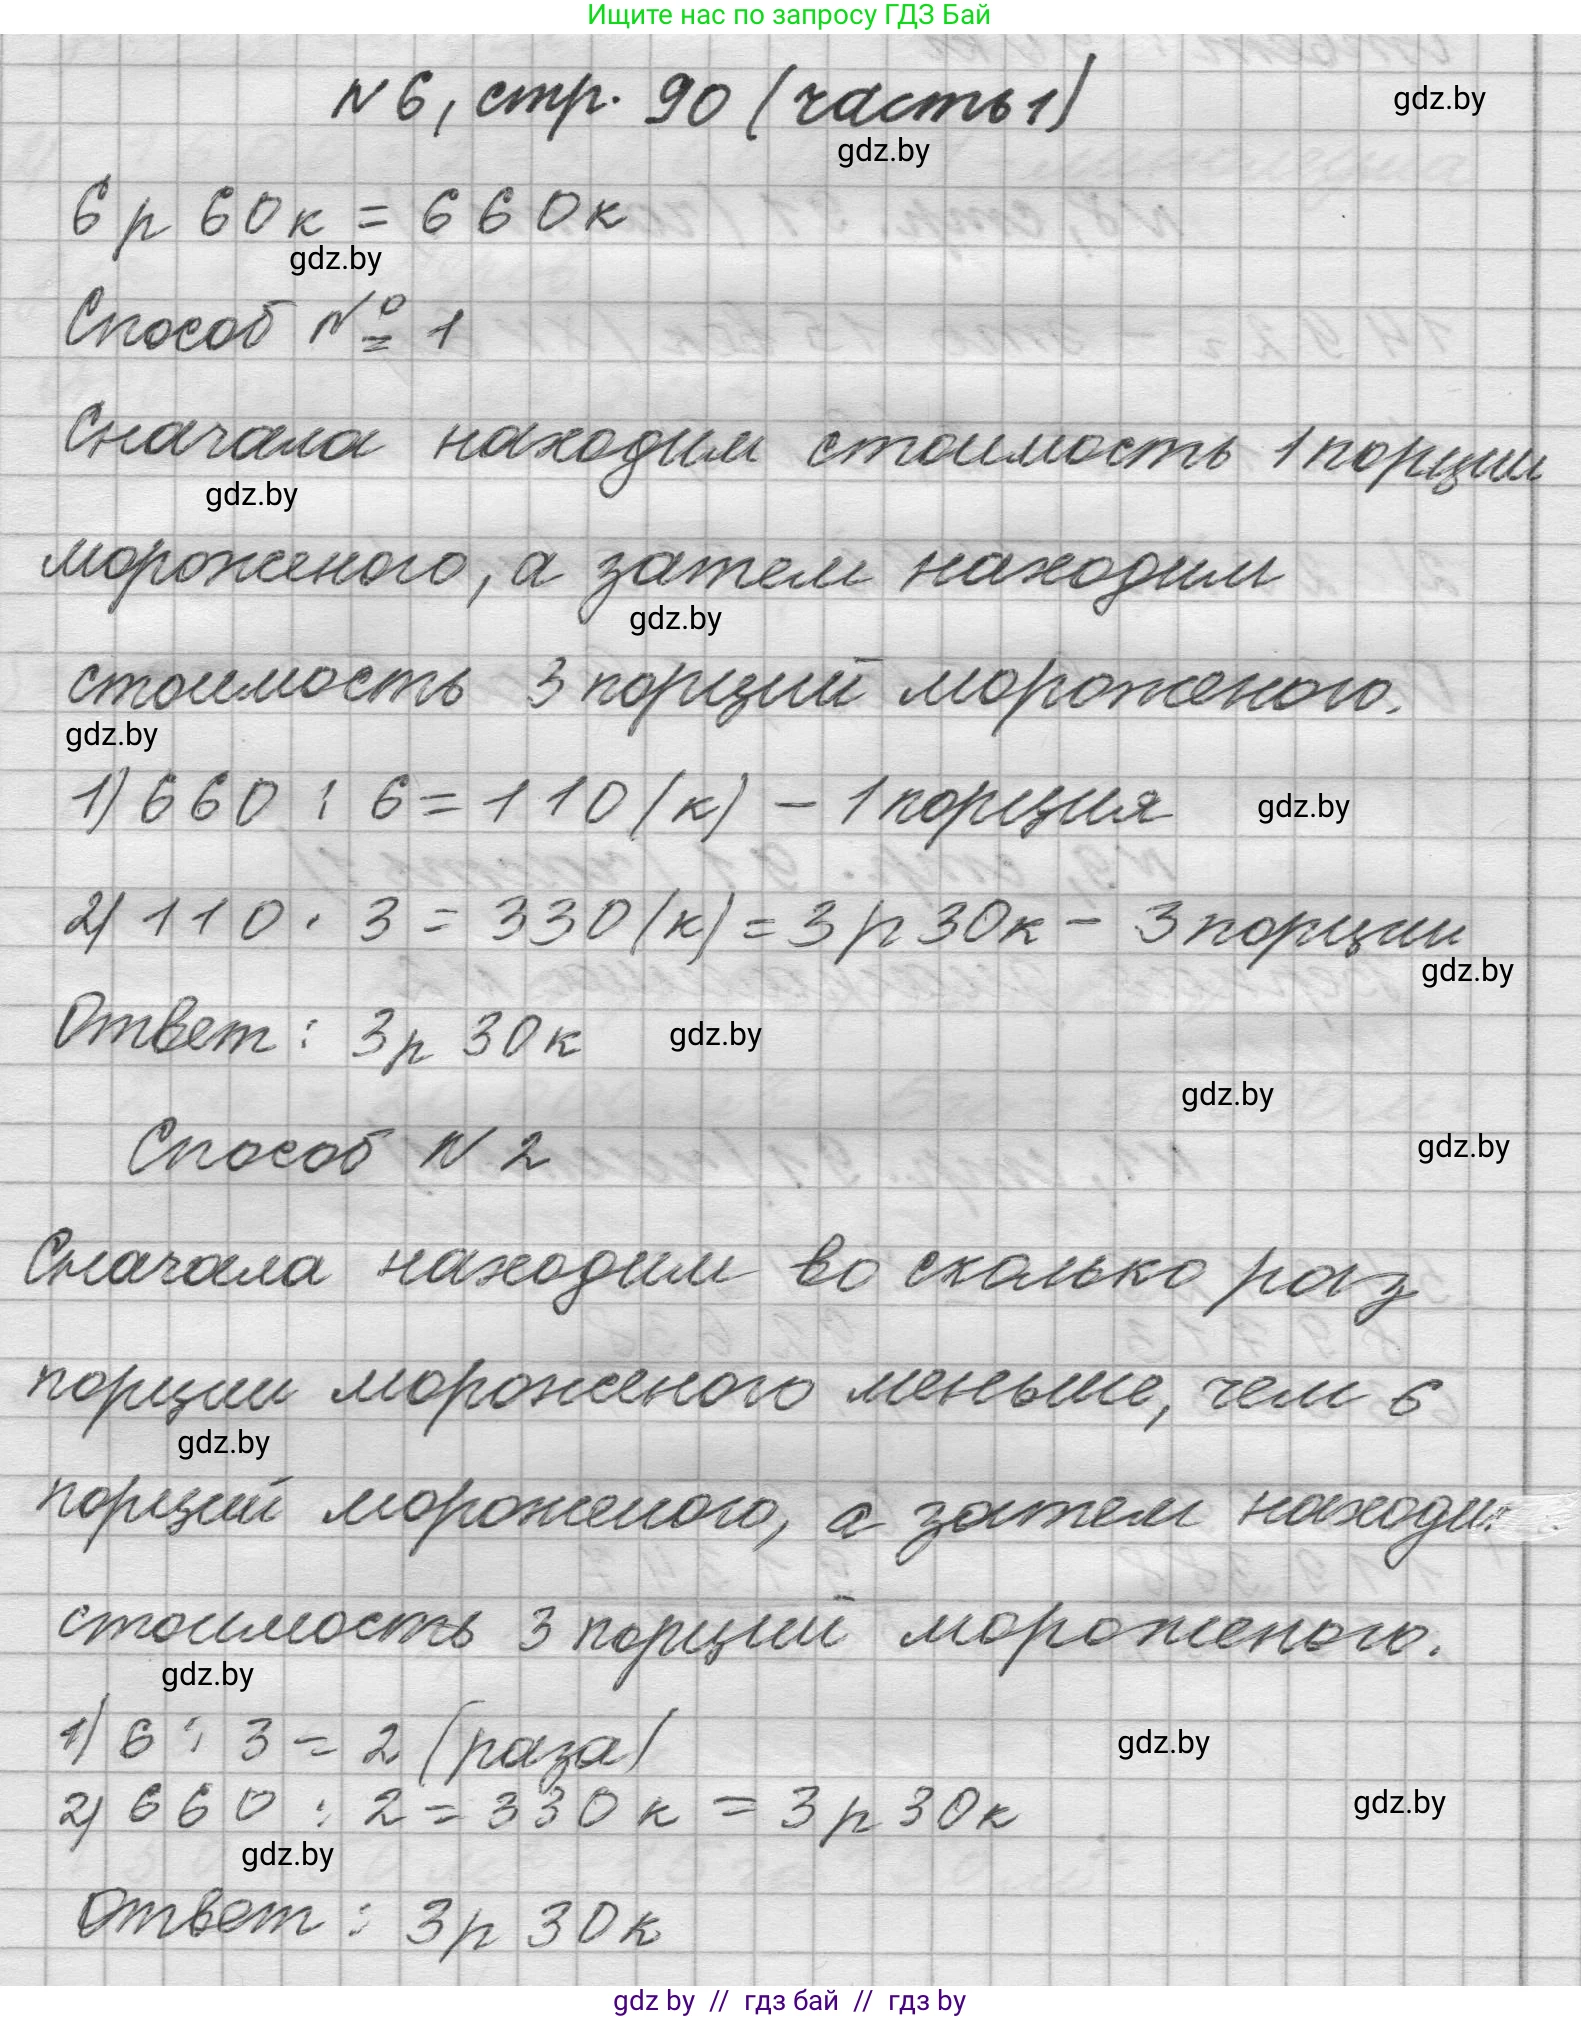 Ищите нас по запросу ГДЗ Бай
N 6, стр. 90 (часть 1)
gdz.by
gdz.by
6 р 60 к = 660 к
gdz.by
Способ № 1
Сначала находим стоимость 1 порции
gdz.by
мороженого, а затем находим
gdz.by
стоимость 3 порций мороженого.
gdz.by
1) 660 : 6 = 110 (к) - 1 порция
gdz.by
2) 110 · 3 = 330 (к) = 3 р 30 к - 3 порции
gdz.by
Ответ : 3 р 30 к
gdz.by
gdz.by
Способ N 2
gdz.by
Сначала находим во сколько раз
порции мороженого меньше, чем 6
gdz.by
порций мороженого, а затем находи
стоимость 3 порций мороженого.
gdz.by
1) 6 : 3 = 2 (раза)
gdz.by
2) 660 : 2 = 330 к = 3 р 30 к
gdz.by
gdz.by
Ответ : 3 р 30 к
gdz by // гдз бай // гдз by